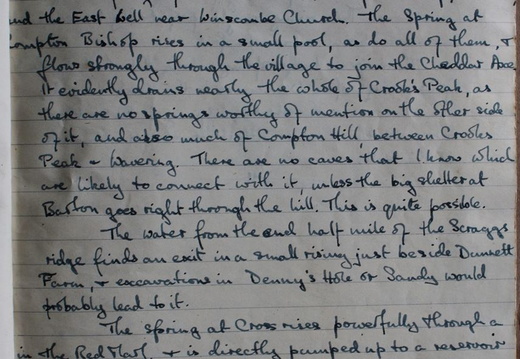 and the East Well near Winscombe Church. The Spring at
Compton Bishop rises in a small pool, as do all of them, +
flows strongly through the village to join the Cheddar Axe.
It evidently drains nearly the whole of Crook's Peak, as
there are no springs worthy of mention on the other side
of it, and also much of Compton Hill, between Crooks
Peak + Wavering. There are no caves that I know which
are likely to connect with it, unless the big shelter at
Barton goes right through the hill. This is quite possible.
The water from the end half mile of the Scraggs
ridge finds an exit in a small rising just beside Dunnett
Farm, + excavations in Denny's Hole or Sandy would
probably lead to it.
The spring at Cross rises powerfully through a
in the Red Marl, + is directly pumped up to a reservoir